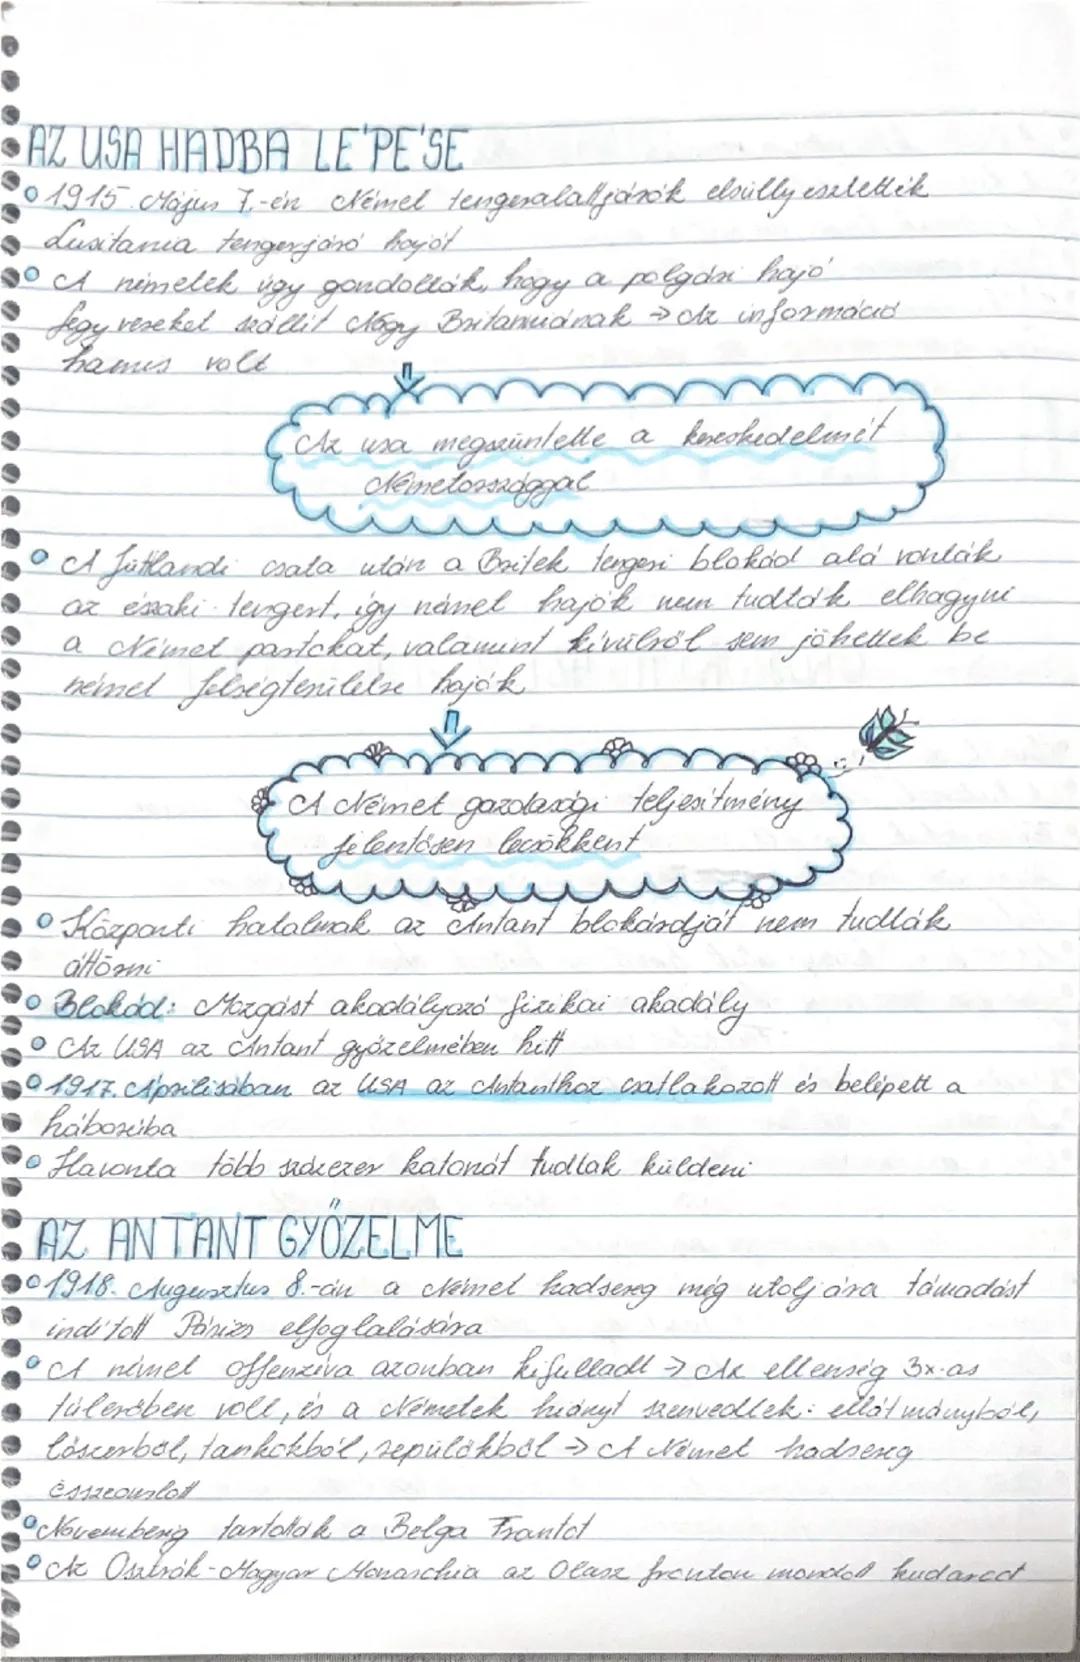 AZ USA HADBA LÉPÉSE
1915. Május 7.-én Német tengeralattjárók elsüllyesztették
Lusitania tengerjáró hajót
A németek úgy gondolták, hogy a polgári hajó
fegyvereket szállít Nagy Britanniának → Az információ
hamis volt
Az usa megszüntette a kereskedelmét
Németországgal
A Jütlandi csata után a Britek tengeri blokád alá vonták
az északi tengert, így német hajók nem tudták elhagyni
a Német partokat, valamint kívülről sem jöhettek be
német felségterületre hajók
A Német gazdasági teljesítmény
jelentősen lecsökkent
Központi hatalmak az Antant blokádját nem tudták
áttörni
Blokád: Mozgást akadályozó fizikai akadály
Az USA az Antant győzelmében hitt
1917. Áprilisában az USA az Antanthoz csatlakozott és belépett a
háborúba
Havonta több százezer katonát tudtak küldeni
AZ ANTANT GYŐZELME
1918. Augusztus 8.-án a Német hadsereg még utoljára támadást
indított Párizs elfoglalására
A német offenzíva azonban kifulladt → Az ellenség 3x-as
túlerőben volt, és a Németek hiányt szenvedtek: ellátmányból,
lőszerből, tankokból, repülőkből → A Német hadsereg
összeomlott
Novemberig tartották a Belga Frontot
Az Osztrák-Magyar Monarchia az Olasz fronton mondott kudarcot